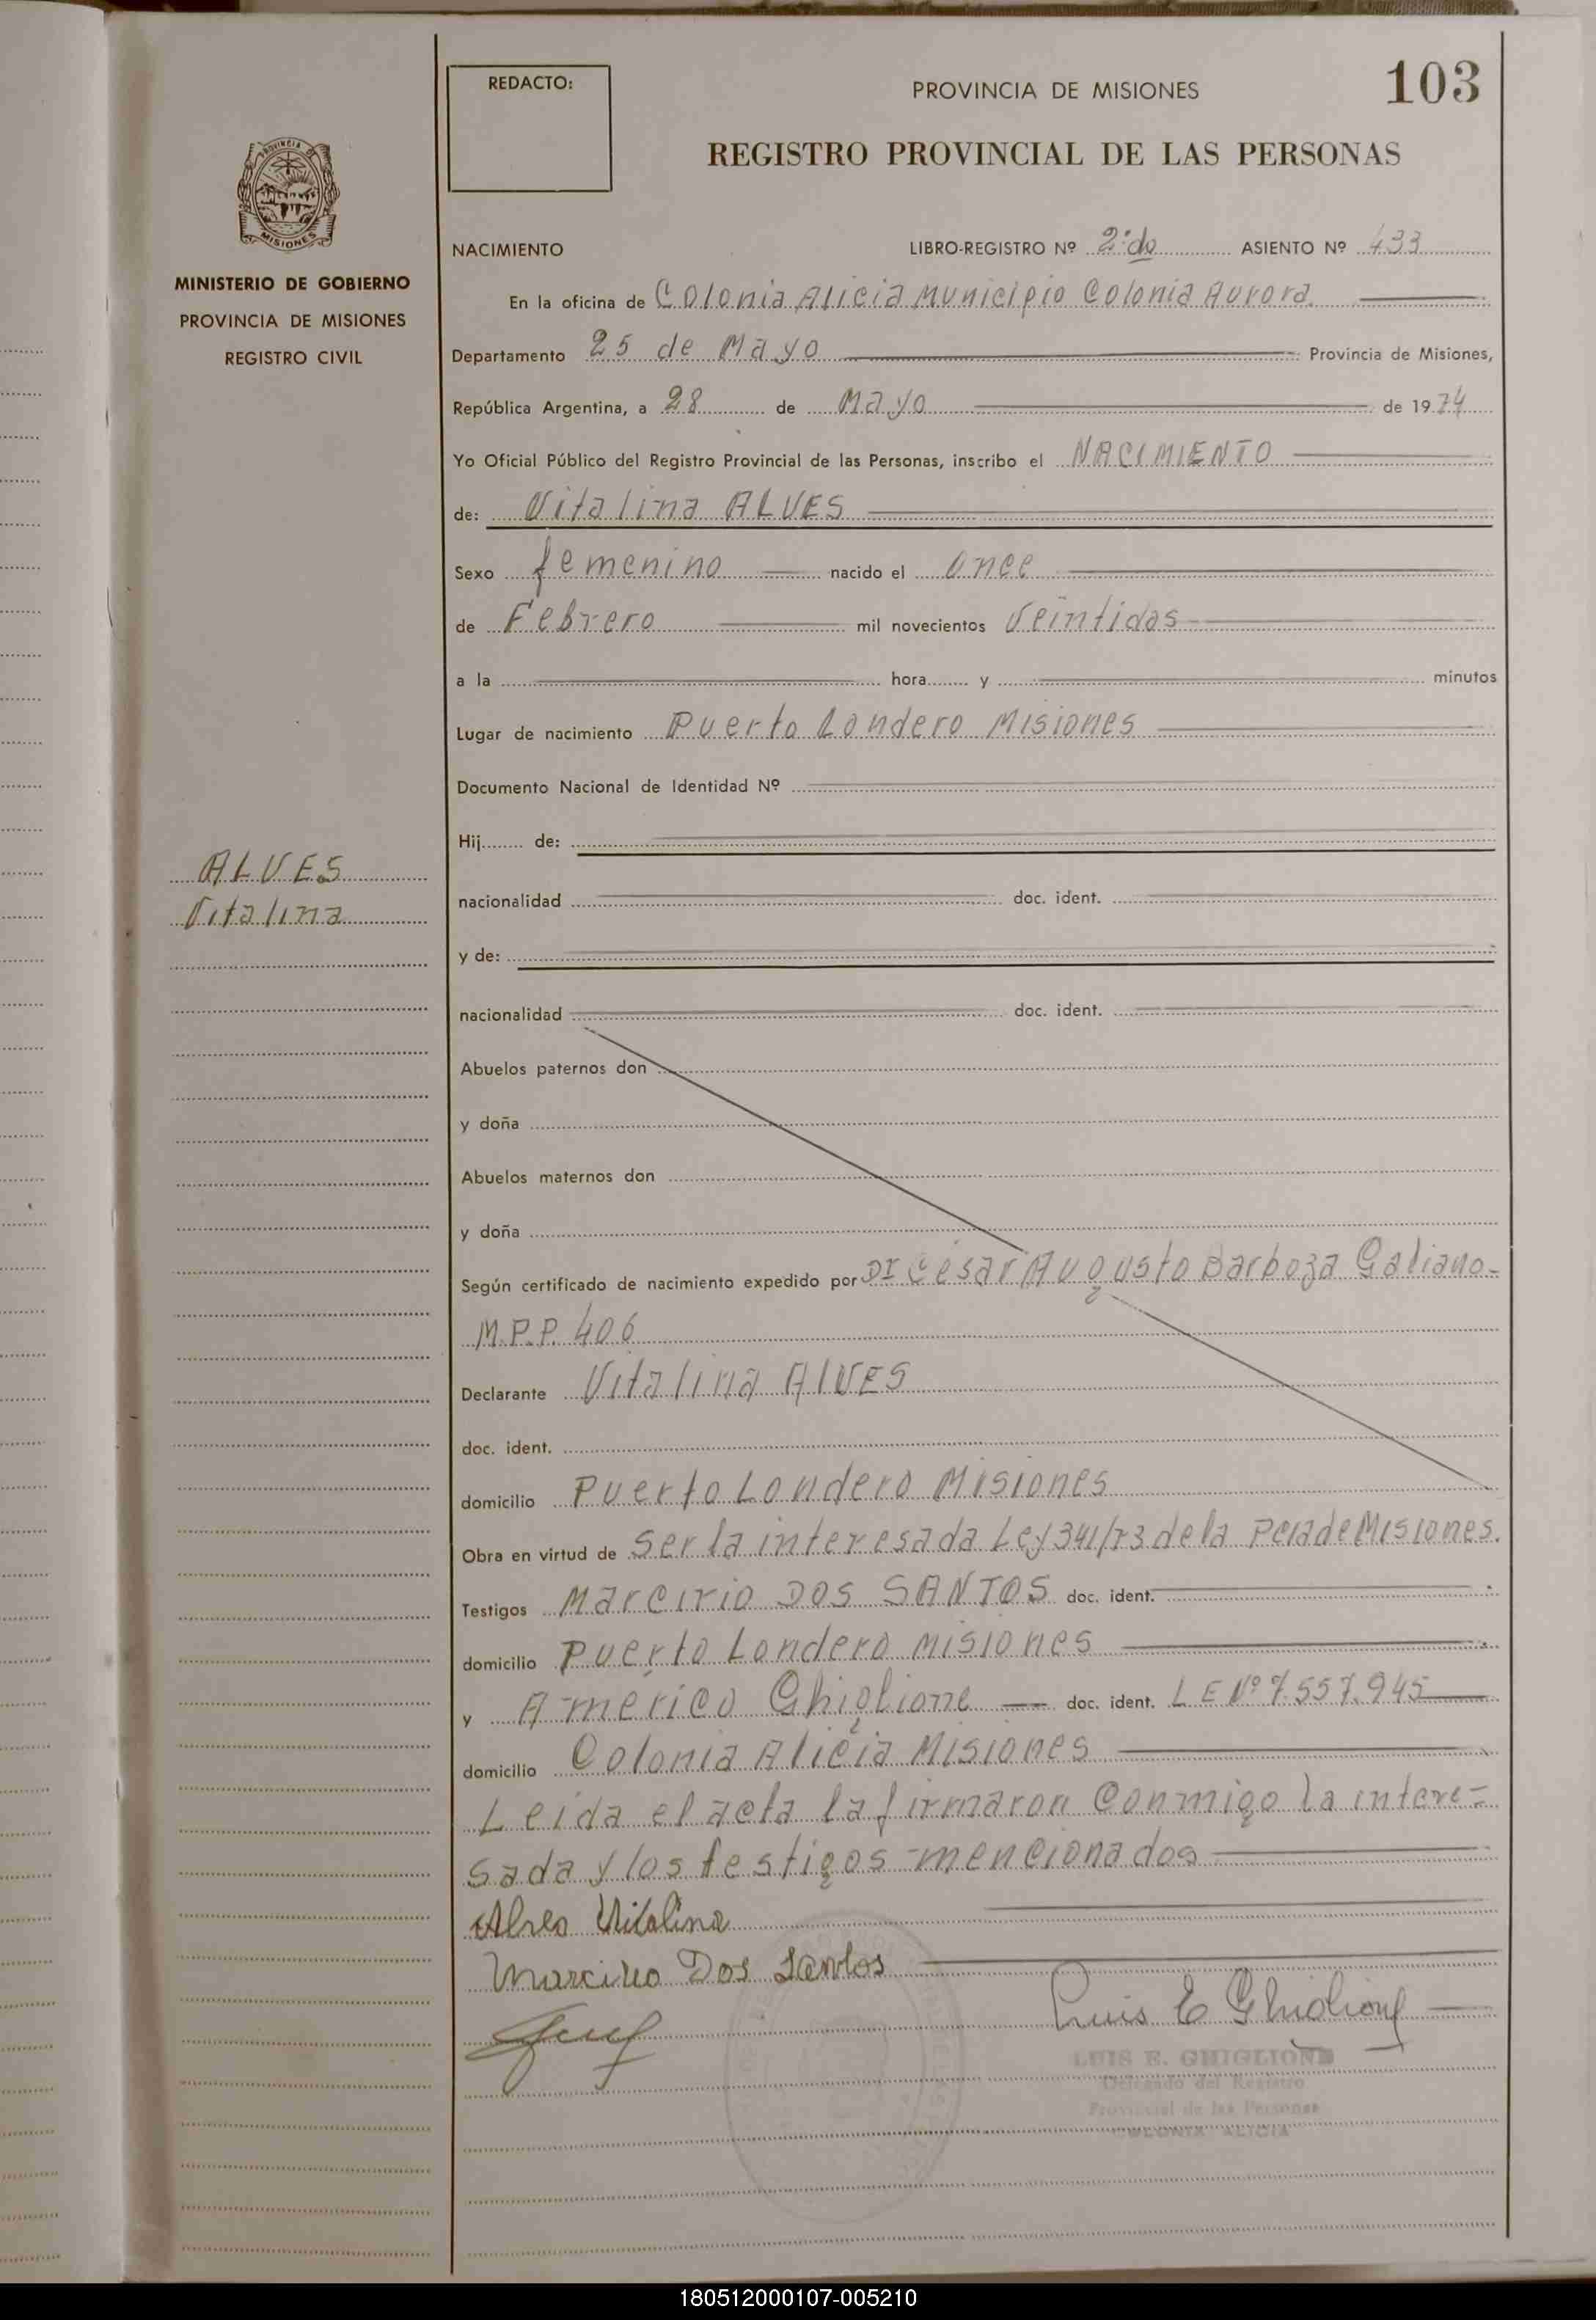 REDACTO:
PROVINCIA DE MISIONES
103
REGISTRO PROVINCIAL DE LAS PERSONAS
PROVINCIA DE
MISIONES
MINISTERIO DE GOBIERNO
PROVINCIA DE MISIONES
REGISTRO CIVIL
NACIMIENTO LIBRO-REGISTRO Nº 2·do ASIENTO Nº 433
En la oficina de Colonia Alicia Municipio Colonia Aurora
Departamento 25 de Mayo Provincia de Misiones,
República Argentina, a 28 de Mayo de 1974
Yo Oficial Público del Registro Provincial de las Personas, inscribo el NACIMIENTO
de: Vitalina ALVES
Sexo femenino nacido el once
de Febrero mil novecientos Veintidos
a la hora y minutos
Lugar de nacimiento Puerto Londero Misiones
Documento Nacional de Identidad Nº
Hij de:
ALVES
Vitalina
nacionalidad doc. ident.
y de:
nacionalidad doc. ident.
Abuelos paternos don
y doña
Abuelos maternos don
y doña
Según certificado de nacimiento expedido por Dr César Augusto Barboza Galiano-
M.P.P. 406
Declarante Vitalina AlVES
doc. ident.
domicilio Puerto Londero Misiones
Obra en virtud de ser la interesada Ley 341/73 de la Pcia de Misiones.
Testigos Marcirio DOS SANTOS doc. ident.
domicilio Puerto Londero Misiones
y Americo Ghiglione doc. ident. LE Nº 7.557.945
domicilio Colonia Alicia Misiones
Leida el acta la firmaron conmigo la intere=
sada y los testigos mencionados
Alves Vitalina
Marcirio Dos Santos
Luis E Ghiglione
LUIS E. GHIGLIONE
Delegado del Registro
Provincial de las Personas
COLONIA ALICIA
180512000107-005210